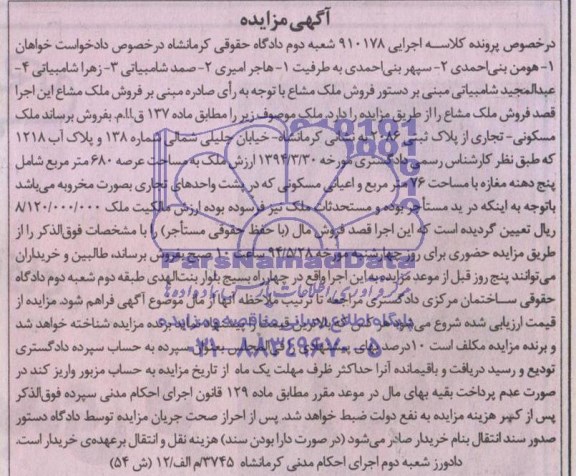 آگهی مزایده
درخصوص پرونده کلاسه اجرایی ۹۱۰۱۷۸ شعبه دوم دادگاه حقوقی کرمانشاه درخصوص دادخواست خواهان
۱- هومن بنی‌احمدی ۲- سپهر بنی‌احمدی به طرفیت ۱- هاجر امیری ۲- صمد شامبیاتی ۳- زهرا شامبیاتی ۴-
عبدالمجید شامبیاتی مبنی بر دستور فروش ملک مشاع با توجه به رأی صادره مبنی بر فروش ملک مشاع این اجرا
قصد فروش ملک مشاع را از طریق مزایده را دارد. ملک موصوف زیر را مطابق ماده ۱۳۷ ق.ا.ا.م. بفروش برساند ملک
مسکونی- تجاری از پلاک ثبتی ۲۰۸۶ به نشانی کرمانشاه- خیابان جلیلی شمالی شماره ۱۳۸ و پلاک آب ۱۲۱۸
که طبق نظر کارشناس رسمی دادگستری مورخه ۱۳۹۴/۳/۳۰ ارزش ملک به مساحت عرصه ۶۸۰ متر مربع شامل
پنج دهنه مغازه با مساحت ۷۶ متر مربع و اعیانی مسکونی که در پشت واحدهای تجاری بصورت مخروبه می‌باشد
باتوجه به اینکه در ید مستأجر بوده و مستحدثات ملک نیز فرسوده بوده ارزش مالکیت ملک ۸/۱۲۰/۰۰۰/۰۰۰
ریال تعیین گردیده است که این اجرا قصد فروش مال (با حفظ حقوقی مستأجر) را با مشخصات فوق‌الذکر را از
طریق مزایده حضوری برای روز چهارشنبه مورخه ۹۴/۵/۲۸ ساعت ۱۰ صبح بفروش برساند، طالبین و خریداران
می‌توانند پنج روز قبل از موعد مزایده به این اجرا واقع در چهارراه بسیج بلوار بنت‌الهدی طبقه دوم شعبه دوم دادگاه
حقوقی ساختمان مرکزی دادگستری مراجعه تا ترتیب ملاحظه آنها از مال موضوع آگهی فراهم شود. مزایده از
قیمت ارزیابی شده شروع می‌شود هر کس که بالاترین قیمت را پیشنهاد نماید برنده مزایده شناخته خواهد شد
و برنده مزایده مکلف است ۱۰درصد بهای پیشنهادی را فی‌المجلس بعنوان سپرده به حساب سپرده دادگستری
تودیع و رسید دریافت و باقیمانده آنرا حداکثر ظرف مهلت یک ماه از تاریخ مزایده به حساب مزبور واریز کند در
صورت عدم پرداخت بقیه بهای مال در موعد مقرر مطابق ماده ۱۲۹ قانون اجرای احکام مدنی سپرده فوق‌الذکر
پس از کسر هزینه مزایده به نفع دولت ضبط خواهد شد. پس از احراز صحت جریان مزایده توسط دادگاه دستور
صدور سند انتقال بنام خریدار صادر می‌شود (در صورت دارا بودن سند) هزینه نقل و انتقال برعهده‌ی خریدار است.
دادورز شعبه دوم اجرای احکام مدنی کرمانشاه ۳۷۴۵/م الف/۱۲ (ش ۵۴)
ParsNamadData
پایگاه اطلاع رسانی مناقصه و مزایده
۰۲۱-۸۸۳۴۹۶۷۰-۵